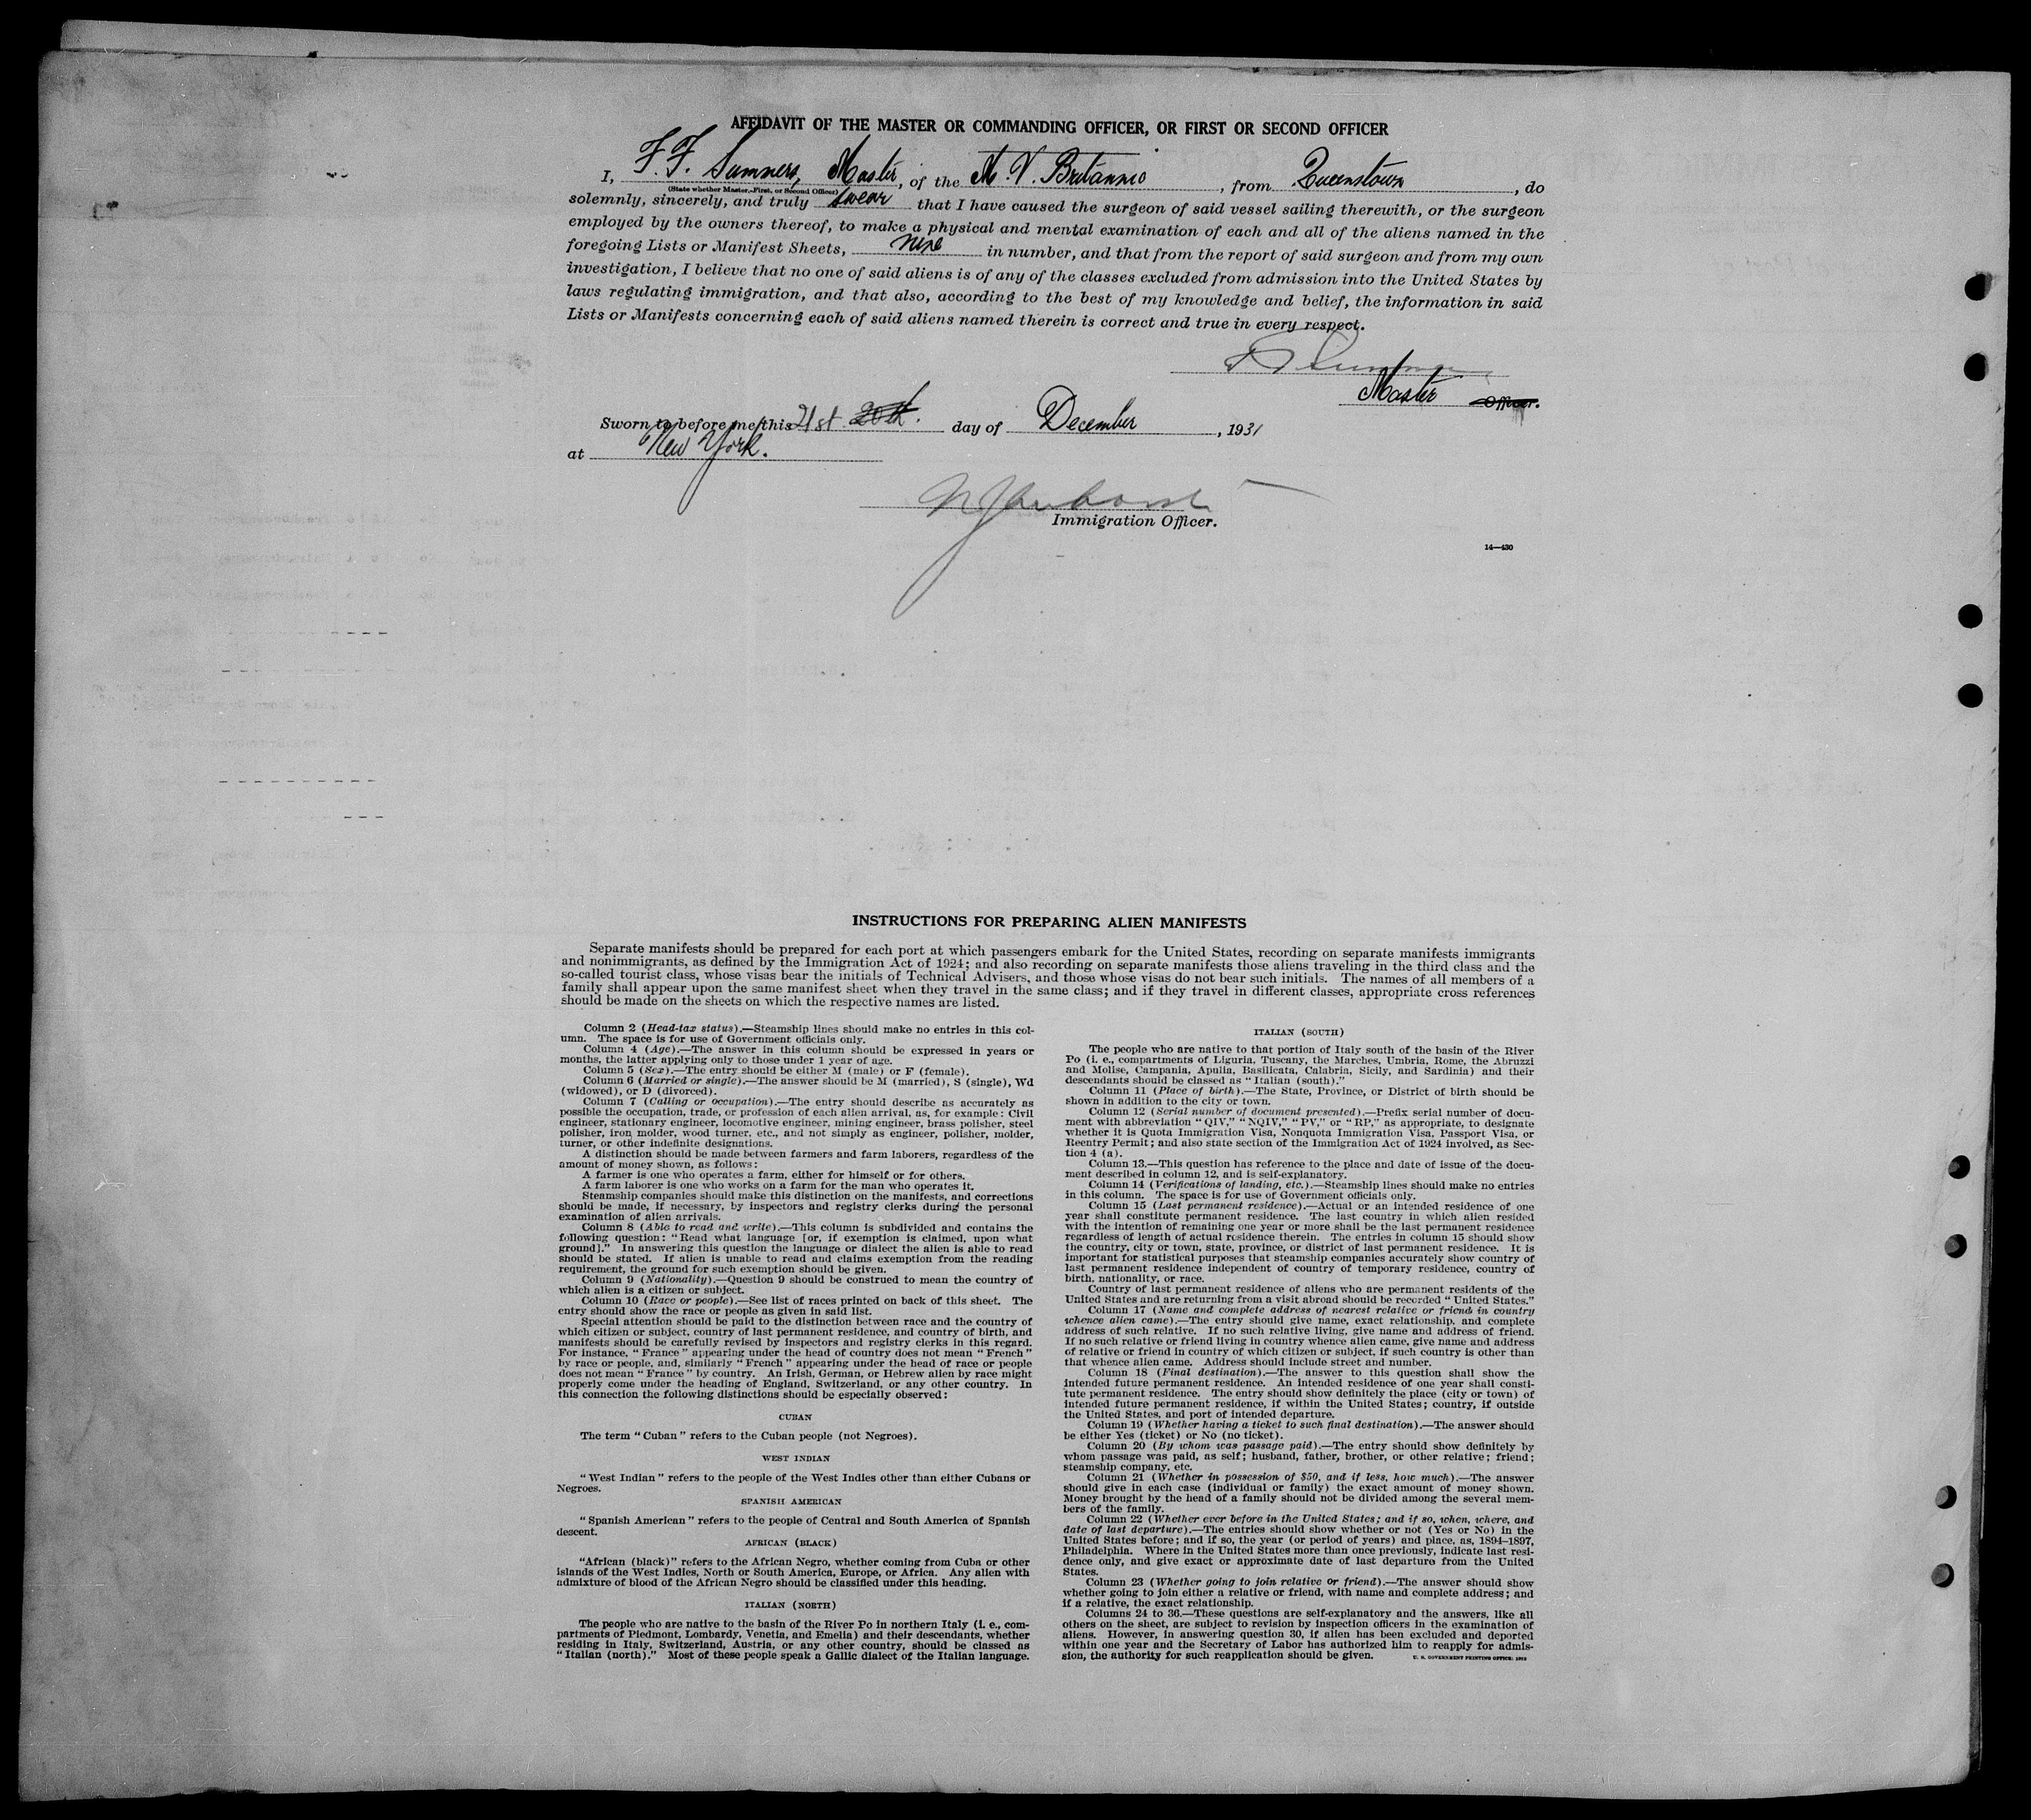 AFFIDAVIT OF THE MASTER OR COMMANDING OFFICER, OR FIRST OR SECOND OFFICER
I, F. F. Summers, Master, of the M. V. Britannic, from Queenstown, do
(State whether Master, First, or Second Officer)
solemnly, sincerely, and truly swear that I have caused the surgeon of said vessel sailing therewith, or the surgeon
employed by the owners thereof, to make a physical and mental examination of each and all of the aliens named in the
foregoing Lists or Manifest Sheets, nine in number, and that from the report of said surgeon and from my own
investigation, I believe that no one of said aliens is of any of the classes excluded from admission into the United States by
laws regulating immigration, and that also, according to the best of my knowledge and belief, the information in said
Lists or Manifests concerning each of said aliens named therein is correct and true in every respect.
Master Officer.
Sworn to before me this 21st 20th. day of December, 1931
at New York.
Immigration Officer.
14—430
INSTRUCTIONS FOR PREPARING ALIEN MANIFESTS
Separate manifests should be prepared for each port at which passengers embark for the United States, recording on separate manifests immigrants
and nonimmigrants, as defined by the Immigration Act of 1924; and also recording on separate manifests those aliens traveling in the third class and the
so-called tourist class, whose visas bear the initials of Technical Advisers, and those whose visas do not bear such initials. The names of all members of a
family shall appear upon the same manifest sheet when they travel in the same class; and if they travel in different classes, appropriate cross references
should be made on the sheets on which the respective names are listed.
Column 2 (Head-tax status).—Steamship lines should make no entries in this col-
umn. The space is for use of Government officials only.
Column 4 (Age).—The answer in this column should be expressed in years or
months, the latter applying only to those under 1 year of age.
Column 5 (Sex).—The entry should be either M (male) or F (female).
Column 6 (Married or single).—The answer should be M (married), S (single), Wd
(widowed), or D (divorced).
Column 7 (Calling or occupation).—The entry should describe as accurately as
possible the occupation, trade, or profession of each alien arrival, as, for example: Civil
engineer, stationary engineer, locomotive engineer, mining engineer, brass polisher, steel
polisher, iron molder, wood turner, etc., and not simply as engineer, polisher, molder,
turner, or other indefinite designations.
A distinction should be made between farmers and farm laborers, regardless of the
amount of money shown, as follows:
A farmer is one who operates a farm, either for himself or for others.
A farm laborer is one who works on a farm for the man who operates it.
Steamship companies should make this distinction on the manifests, and corrections
should be made, if necessary, by inspectors and registry clerks during the personal
examination of alien arrivals.
Column 8 (Able to read and write).—This column is subdivided and contains the
following question: "Read what language [or, if exemption is claimed, upon what
ground]." In answering this question the language or dialect the alien is able to read
should be stated. If alien is unable to read and claims exemption from the reading
requirement, the ground for such exemption should be given.
Column 9 (Nationality).—Question 9 should be construed to mean the country of
which alien is a citizen or subject.
Column 10 (Race or people).—See list of races printed on back of this sheet. The
entry should show the race or people as given in said list.
Special attention should be paid to the distinction between race and the country of
which citizen or subject, country of last permanent residence, and country of birth, and
manifests should be carefully revised by inspectors and registry clerks in this regard.
For instance, "France" appearing under the head of country does not mean "French"
by race or people, and, similarly "French" appearing under the head of race or people
does not mean "France" by country. An Irish, German, or Hebrew alien by race might
properly come under the heading of England, Switzerland, or any other country. In
this connection the following distinctions should be especially observed:
CUBAN
The term "Cuban" refers to the Cuban people (not Negroes).
WEST INDIAN
"West Indian" refers to the people of the West Indies other than either Cubans or
Negroes.
SPANISH AMERICAN
"Spanish American" refers to the people of Central and South America of Spanish
descent.
AFRICAN (BLACK)
"African (black)" refers to the African Negro, whether coming from Cuba or other
islands of the West Indies, North or South America, Europe, or Africa. Any alien with
admixture of blood of the African Negro should be classified under this heading.
ITALIAN (NORTH)
The people who are native to the basin of the River Po in northern Italy (i. e., com-
partments of Piedmont, Lombardy, Venetia, and Emelia) and their descendants, whether
residing in Italy, Switzerland, Austria, or any other country, should be classed as
"Italian (north)." Most of these people speak a Gallic dialect of the Italian language.
ITALIAN (SOUTH)
The people who are native to that portion of Italy south of the basin of the River
Po (i. e., compartments of Liguria, Tuscany, the Marches, Umbria, Rome, the Abruzzi
and Molise, Campania, Apulia, Basilicata, Calabria, Sicily, and Sardinia) and their
descendants should be classed as "Italian (south)."
Column 11 (Place of birth).—The State, Province, or District of birth should be
shown in addition to the city or town.
Column 12 (Serial number of document presented).—Prefix serial number of docu-
ment with abbreviation "QIV," "NQIV," "PV," or "RP," as appropriate, to designate
whether it is Quota Immigration Visa, Nonquota Immigration Visa, Passport Visa, or
Reentry Permit; and also state section of the Immigration Act of 1924 involved, as Sec-
tion 4 (a).
Column 13.—This question has reference to the place and date of issue of the docu-
ment described in column 12, and is self-explanatory.
Column 14 (Verifications of landing, etc.).—Steamship lines should make no entries
in this column. The space is for use of Government officials only.
Column 15 (Last permanent residence).—Actual or an intended residence of one
year shall constitute permanent residence. The last country in which alien resided
with the intention of remaining one year or more shall be the last permanent residence
regardless of length of actual residence therein. The entries in column 15 should show
the country, city or town, state, province, or district of last permanent residence. It is
important for statistical purposes that steamship companies accurately show country of
last permanent residence independent of country of temporary residence, country of
birth, nationality, or race.
Country of last permanent residence of aliens who are permanent residents of the
United States and are returning from a visit abroad should be recorded "United States."
Column 17 (Name and complete address of nearest relative or friend in country
whence alien came).—The entry should give name, exact relationship, and complete
address of such relative. If no such relative living, give name and address of friend.
If no such relative or friend living in country whence alien came, give name and address
of relative or friend in country of which citizen or subject, if such country is other than
that whence alien came. Address should include street and number.
Column 18 (Final destination).—The answer to this question shall show the
intended future permanent residence. An intended residence of one year shall consti-
tute permanent residence. The entry should show definitely the place (city or town) of
intended future permanent residence, if within the United States; country, if outside
the United States, and port of intended departure.
Column 19 (Whether having a ticket to such final destination).—The answer should
be either Yes (ticket) or No (no ticket).
Column 20 (By whom was passage paid).—The entry should show definitely by
whom passage was paid, as self; husband, father, brother, or other relative; friend;
steamship company, etc.
Column 21 (Whether in possession of $50, and if less, how much).—The answer
should give in each case (individual or family) the exact amount of money shown.
Money brought by the head of a family should not be divided among the several mem-
bers of the family.
Column 22 (Whether ever before in the United States; and if so, when, where, and
date of last departure).—The entries should show whether or not (Yes or No) in the
United States before; and if so, the year (or period of years) and place, as, 1894–1897,
Philadelphia. Where in the United States more than once previously, indicate last resi-
dence only, and give exact or approximate date of last departure from the United
States.
Column 23 (Whether going to join relative or friend).—The answer should show
whether going to join either a relative or friend, with name and complete address; and
if a relative, the exact relationship.
Columns 24 to 36.—These questions are self-explanatory and the answers, like all
others on the sheet, are subject to revision by inspection officers in the examination of
aliens. However, in answering question 30, if alien has been excluded and deported
within one year and the Secretary of Labor has authorized him to reapply for admis-
sion, the authority for such reapplication should be given.
U. S. GOVERNMENT PRINTING OFFICE: